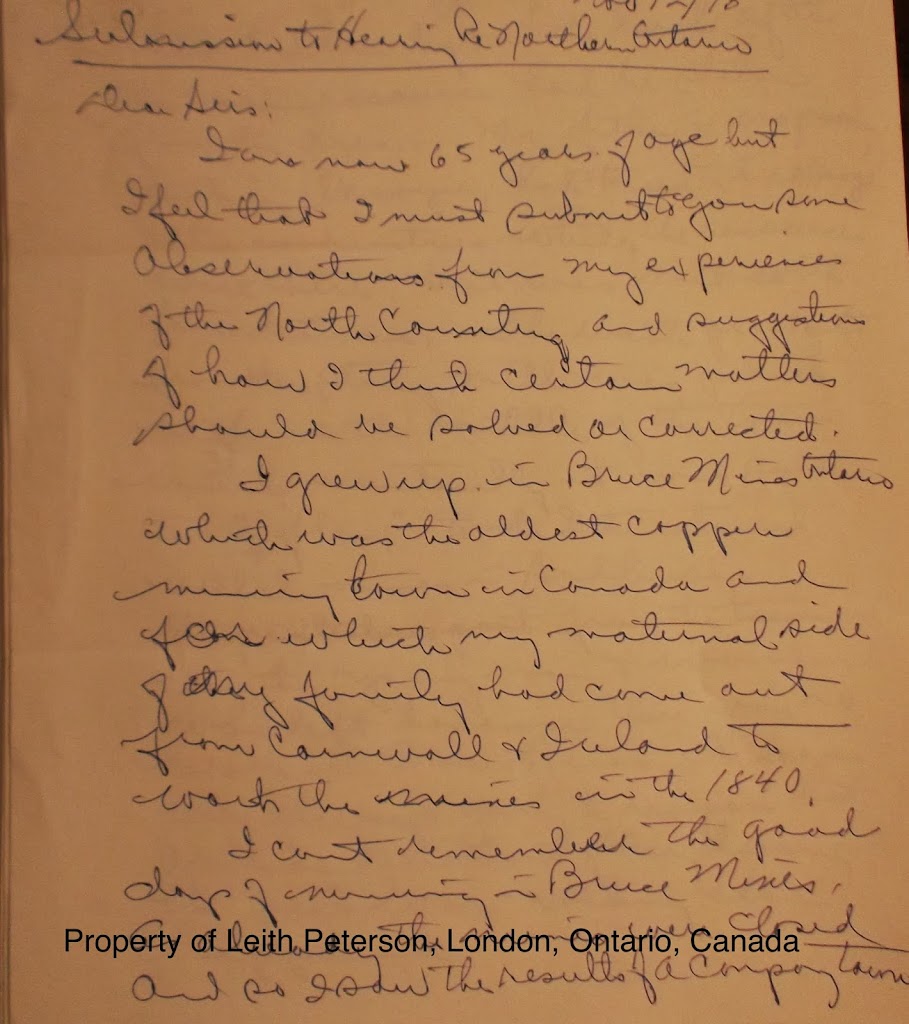 Submission to Hearing Re Northern Ontario
Dear Sirs:
I am now 65 years of age but
I feel that I must submit to you some
observations from my experiences
of the North Country and suggestions
of how I think certain matters
should be solved or corrected.
I grew up in Bruce Mines Ontario
which was the oldest copper
mining town in Canada and
for which my maternal side
of my family had come out
from Cornwall & Ireland to
work the mines in the 1840,
I cant remember the good
days of mining in Bruce Mines.
already the mines were closed
Property of Leith Peterson, London, Ontario, Canada
And so I saw the results of a Company town